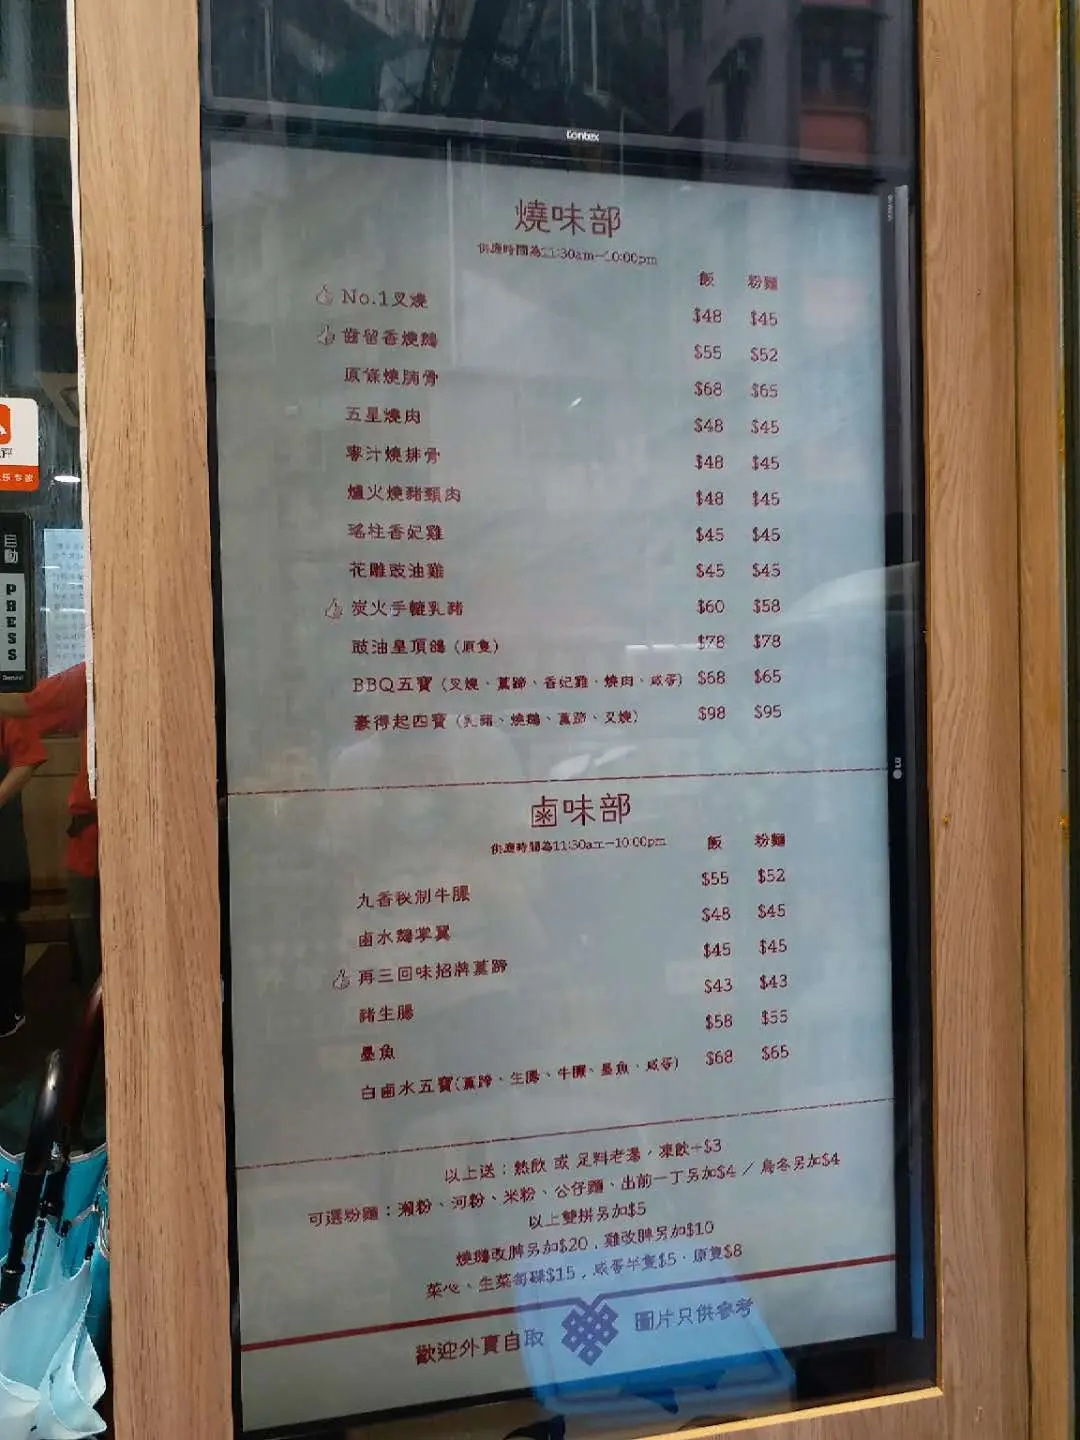 Contex
燒味部
供應時間為11:30am-10:00pm
飯 粉麵
No.1叉燒 $48 $45
齒留香燒鵝 $55 $52
原條燒腩骨 $68 $65
五星燒肉 $48 $45
蜜汁燒排骨 $48 $45
爐火燒豬頸肉 $48 $45
瑤柱香妃雞 $45 $45
花雕豉油雞 $45 $45
炭火手轆乳豬 $60 $58
豉油皇頂鴿（原隻） $78 $78
BBQ五寶（叉燒、薑蹄、香妃雞、燒肉、咸蛋） $68 $65
豪得起四寶（乳豬、燒鵝、薑蹄、叉燒） $98 $95
鹵味部
供應時間為11:30am-10:00pm
飯 粉麵
九香秘制牛𦟌 $55 $52
鹵水鵝掌翼 $48 $45
再三回味招牌薑蹄 $45 $45
豬生腸 $43 $43
墨魚 $58 $55
白鹵水五寶（薑蹄、生腸、牛𦟌、墨魚、咸蛋） $68 $65
以上送：熱飲 或 足料老湯，凍飲+$3
可選粉麵：瀨粉、河粉、米粉、公仔麵、出前一丁另加$4 / 烏冬另加$4
以上雙拼另加$5
燒鵝改脾另加$20，雞改脾另加$10
菜心、生菜每碟$15，咸蛋半隻$5，原隻$8
歡迎外賣自取 圖片只供參考
自動
PRESS